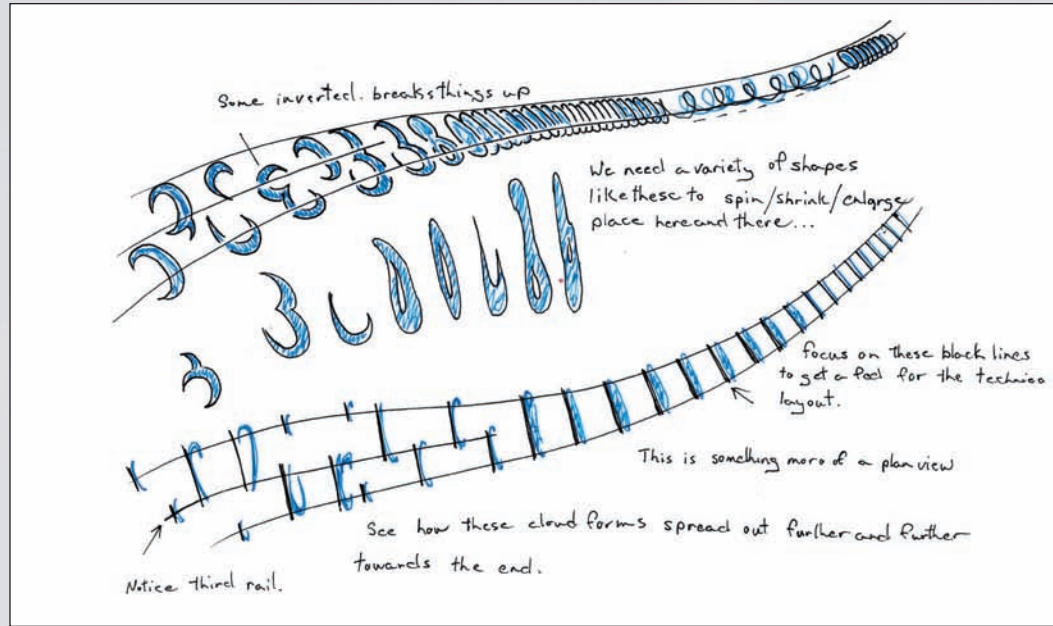 Some inverted. breaks things up
We need a variety of shapes
like these to spin/shrink/enlarge
place here and there...
focus on these black lines
to get a feel for the technica
layout.
This is something more of a plan view
See how these cloud forms spread out further and further
towards the end.
Notice third rail.